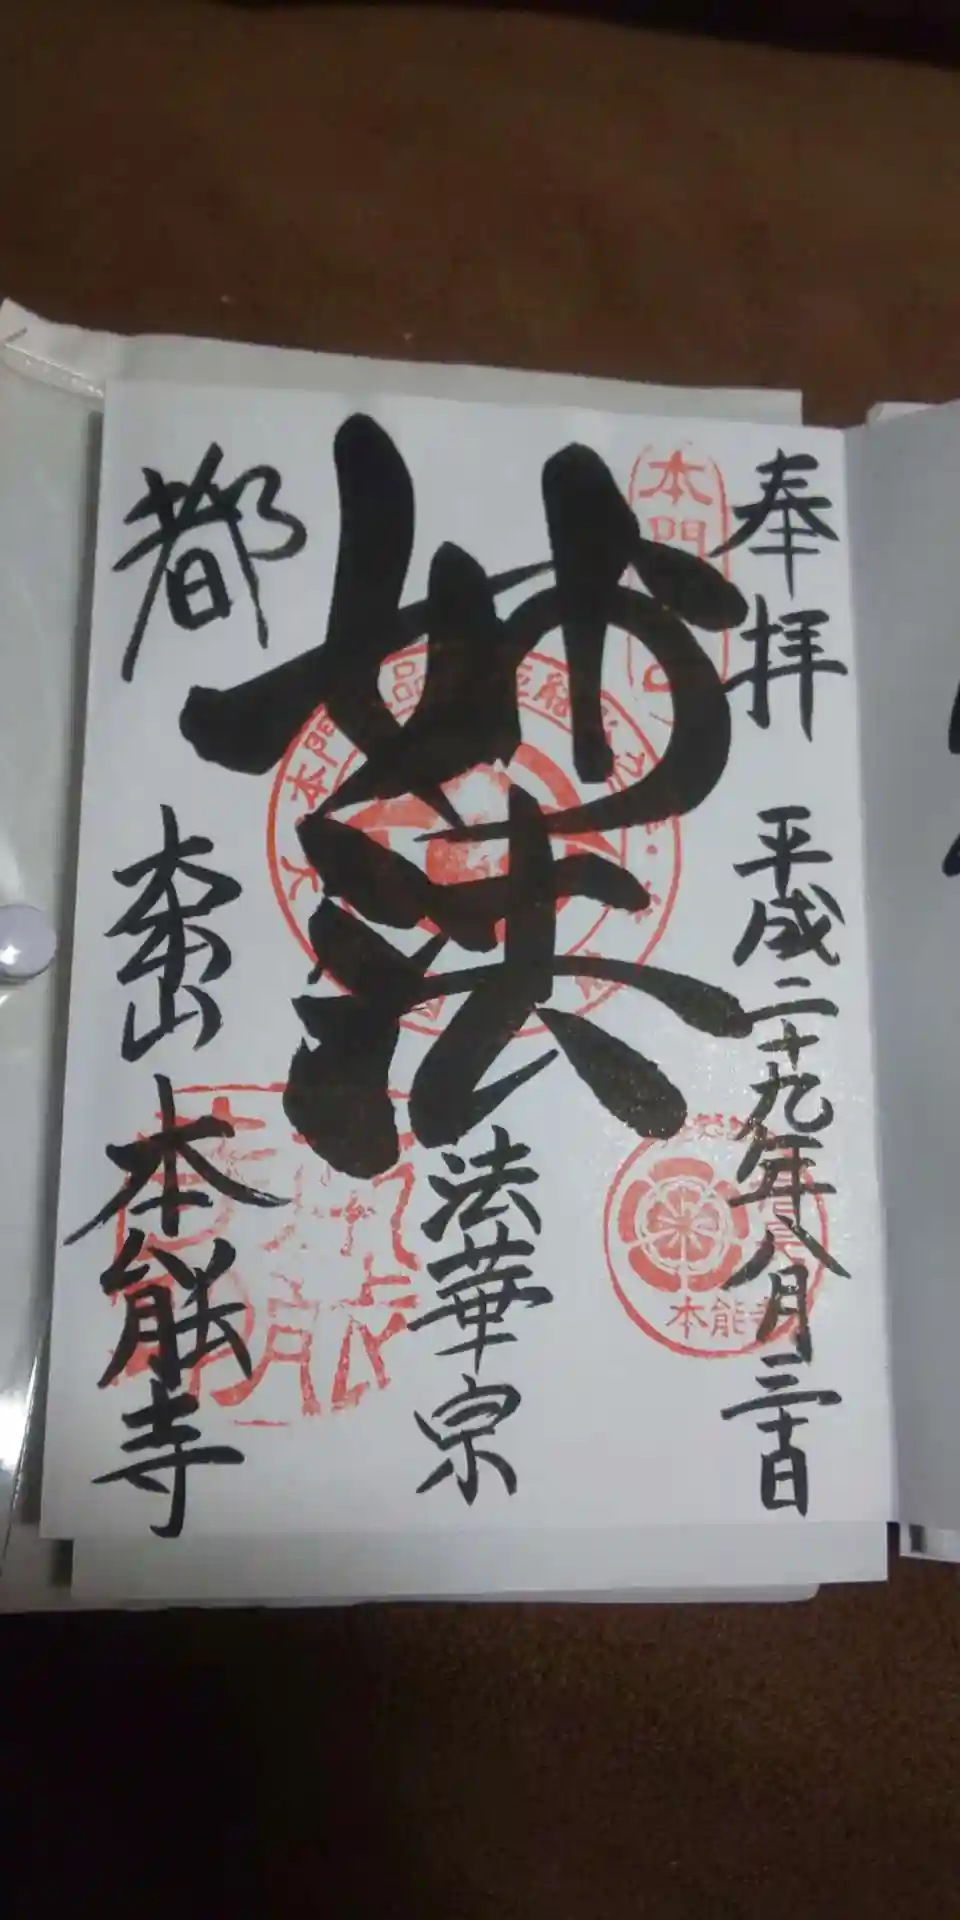 奉拝
平成二十九年八月三十日
本門
妙法
法華宗
本能寺
都
大本山
本能寺